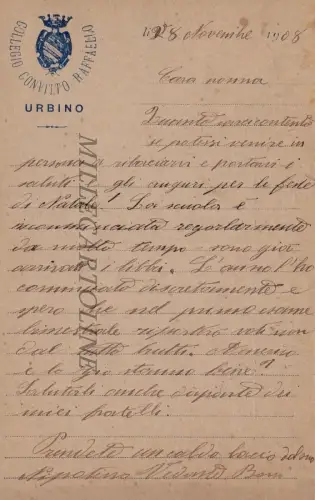 COLLEGIO CONVITTO RAFFAELLO
URBINO
28 Novembre 1908
Cara nonna
Quanto sarei contento
se potessi venire in
persona a ribaciarvi e portarvi i
saluti e gli auguri per le feste
di Natale! La scuola è
incominciata regolarmente
da molto tempo e sono già
arrivati i libri. L'anno l'ho
cominciato discretamente e
spero che nel primo esame
bimestrale riporterò voti non
del tutto brutti. Nonno
e lo zio stanno bene?
Salutali anche da parte dei
miei fratelli.
Prendete un caldo bacio dal vo
Nipotino
MILLECARTOLINE